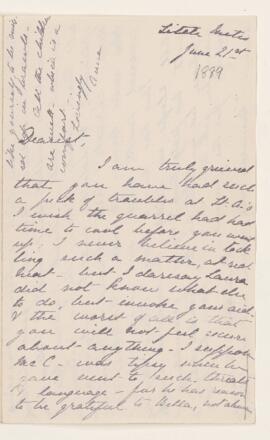 June 21st
1889
Dearest,
I am truly grieved
that you have had such
a peck of troubles at
I wish the quarrel had had
time to cool before you went
up. I never believe in tack
ling such a matter, at red
heat - but I daresay Laura
did not know what else
to do, but invoke your aid -
& the worst of all is that
you will not feel secure
about anything - I suppose
McC - was tipsy when he
gave vent to such threats
& language - for he has reason
to be grateful to Bella, not
are well - which is a
comfort
Lovingly